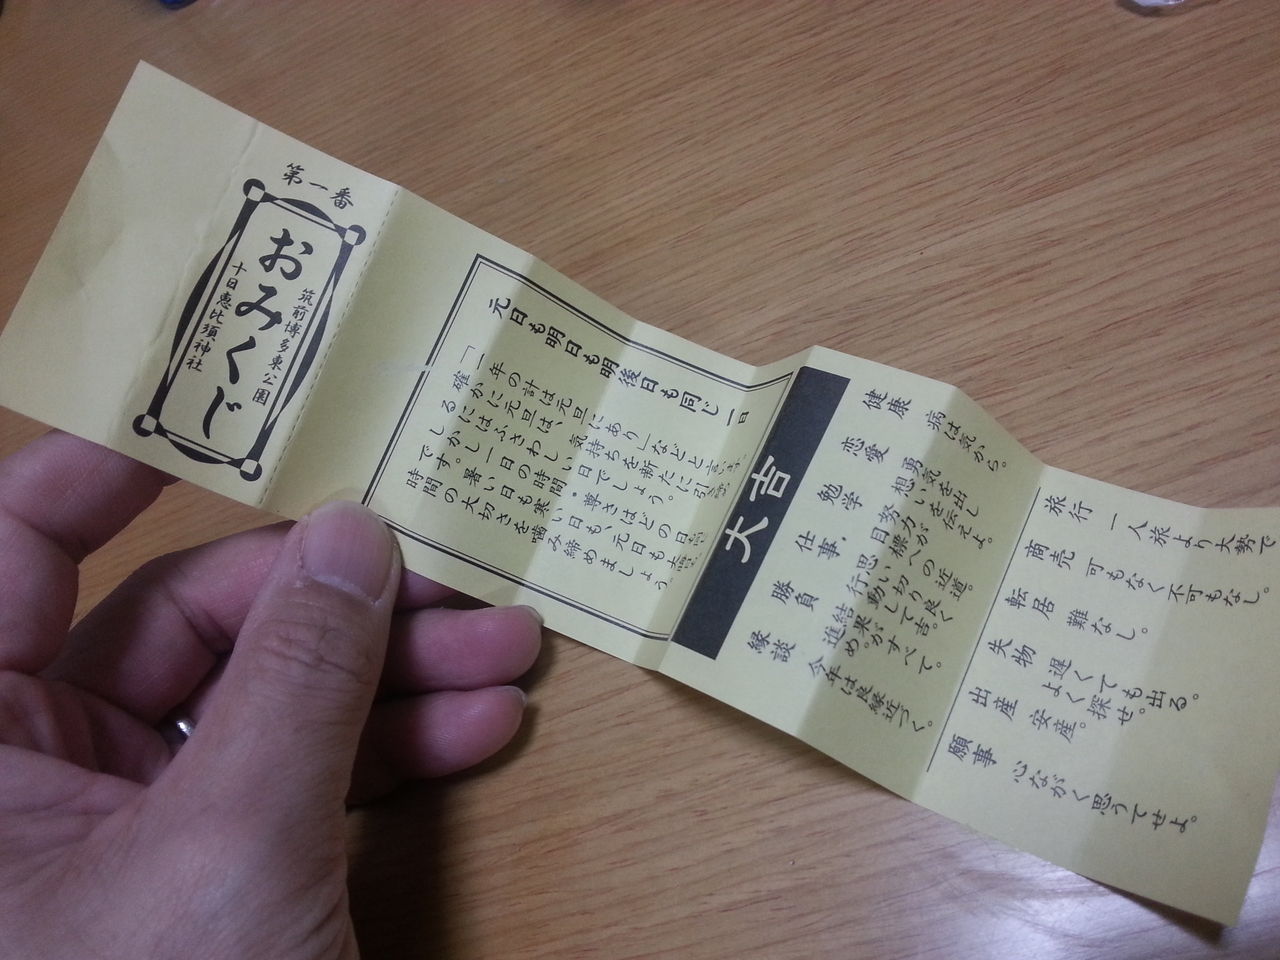 第一番
おみくじ
筑前博多東公園
十日恵比須神社
元日も明日も明後日も同じ一日
「一年の計は元旦にあり」などと言います。
確かに元旦は、気持ちを新たに引き
るにはふさわしい一日でしょう。
しかし一日の時間・尊さはどの日も
です。暑い日も寒い日も、元日も
時間の大切さを噛み締めましょう
大吉
健康 病は気から。
恋愛 勇気を出し
想いを伝えよ。
勉学 努力が
目標への近道。
仕事 思い切り良く
行動して吉。
勝負 結果がすべて。
進め。
縁談 今年は良縁近づく。
旅行 一人旅より大勢で
商売 可もなく不可もなし。
転居 難なし。
失物 遅くても出る。
よく探せ。
出産 安産。
願事 心ながく思うてせよ。